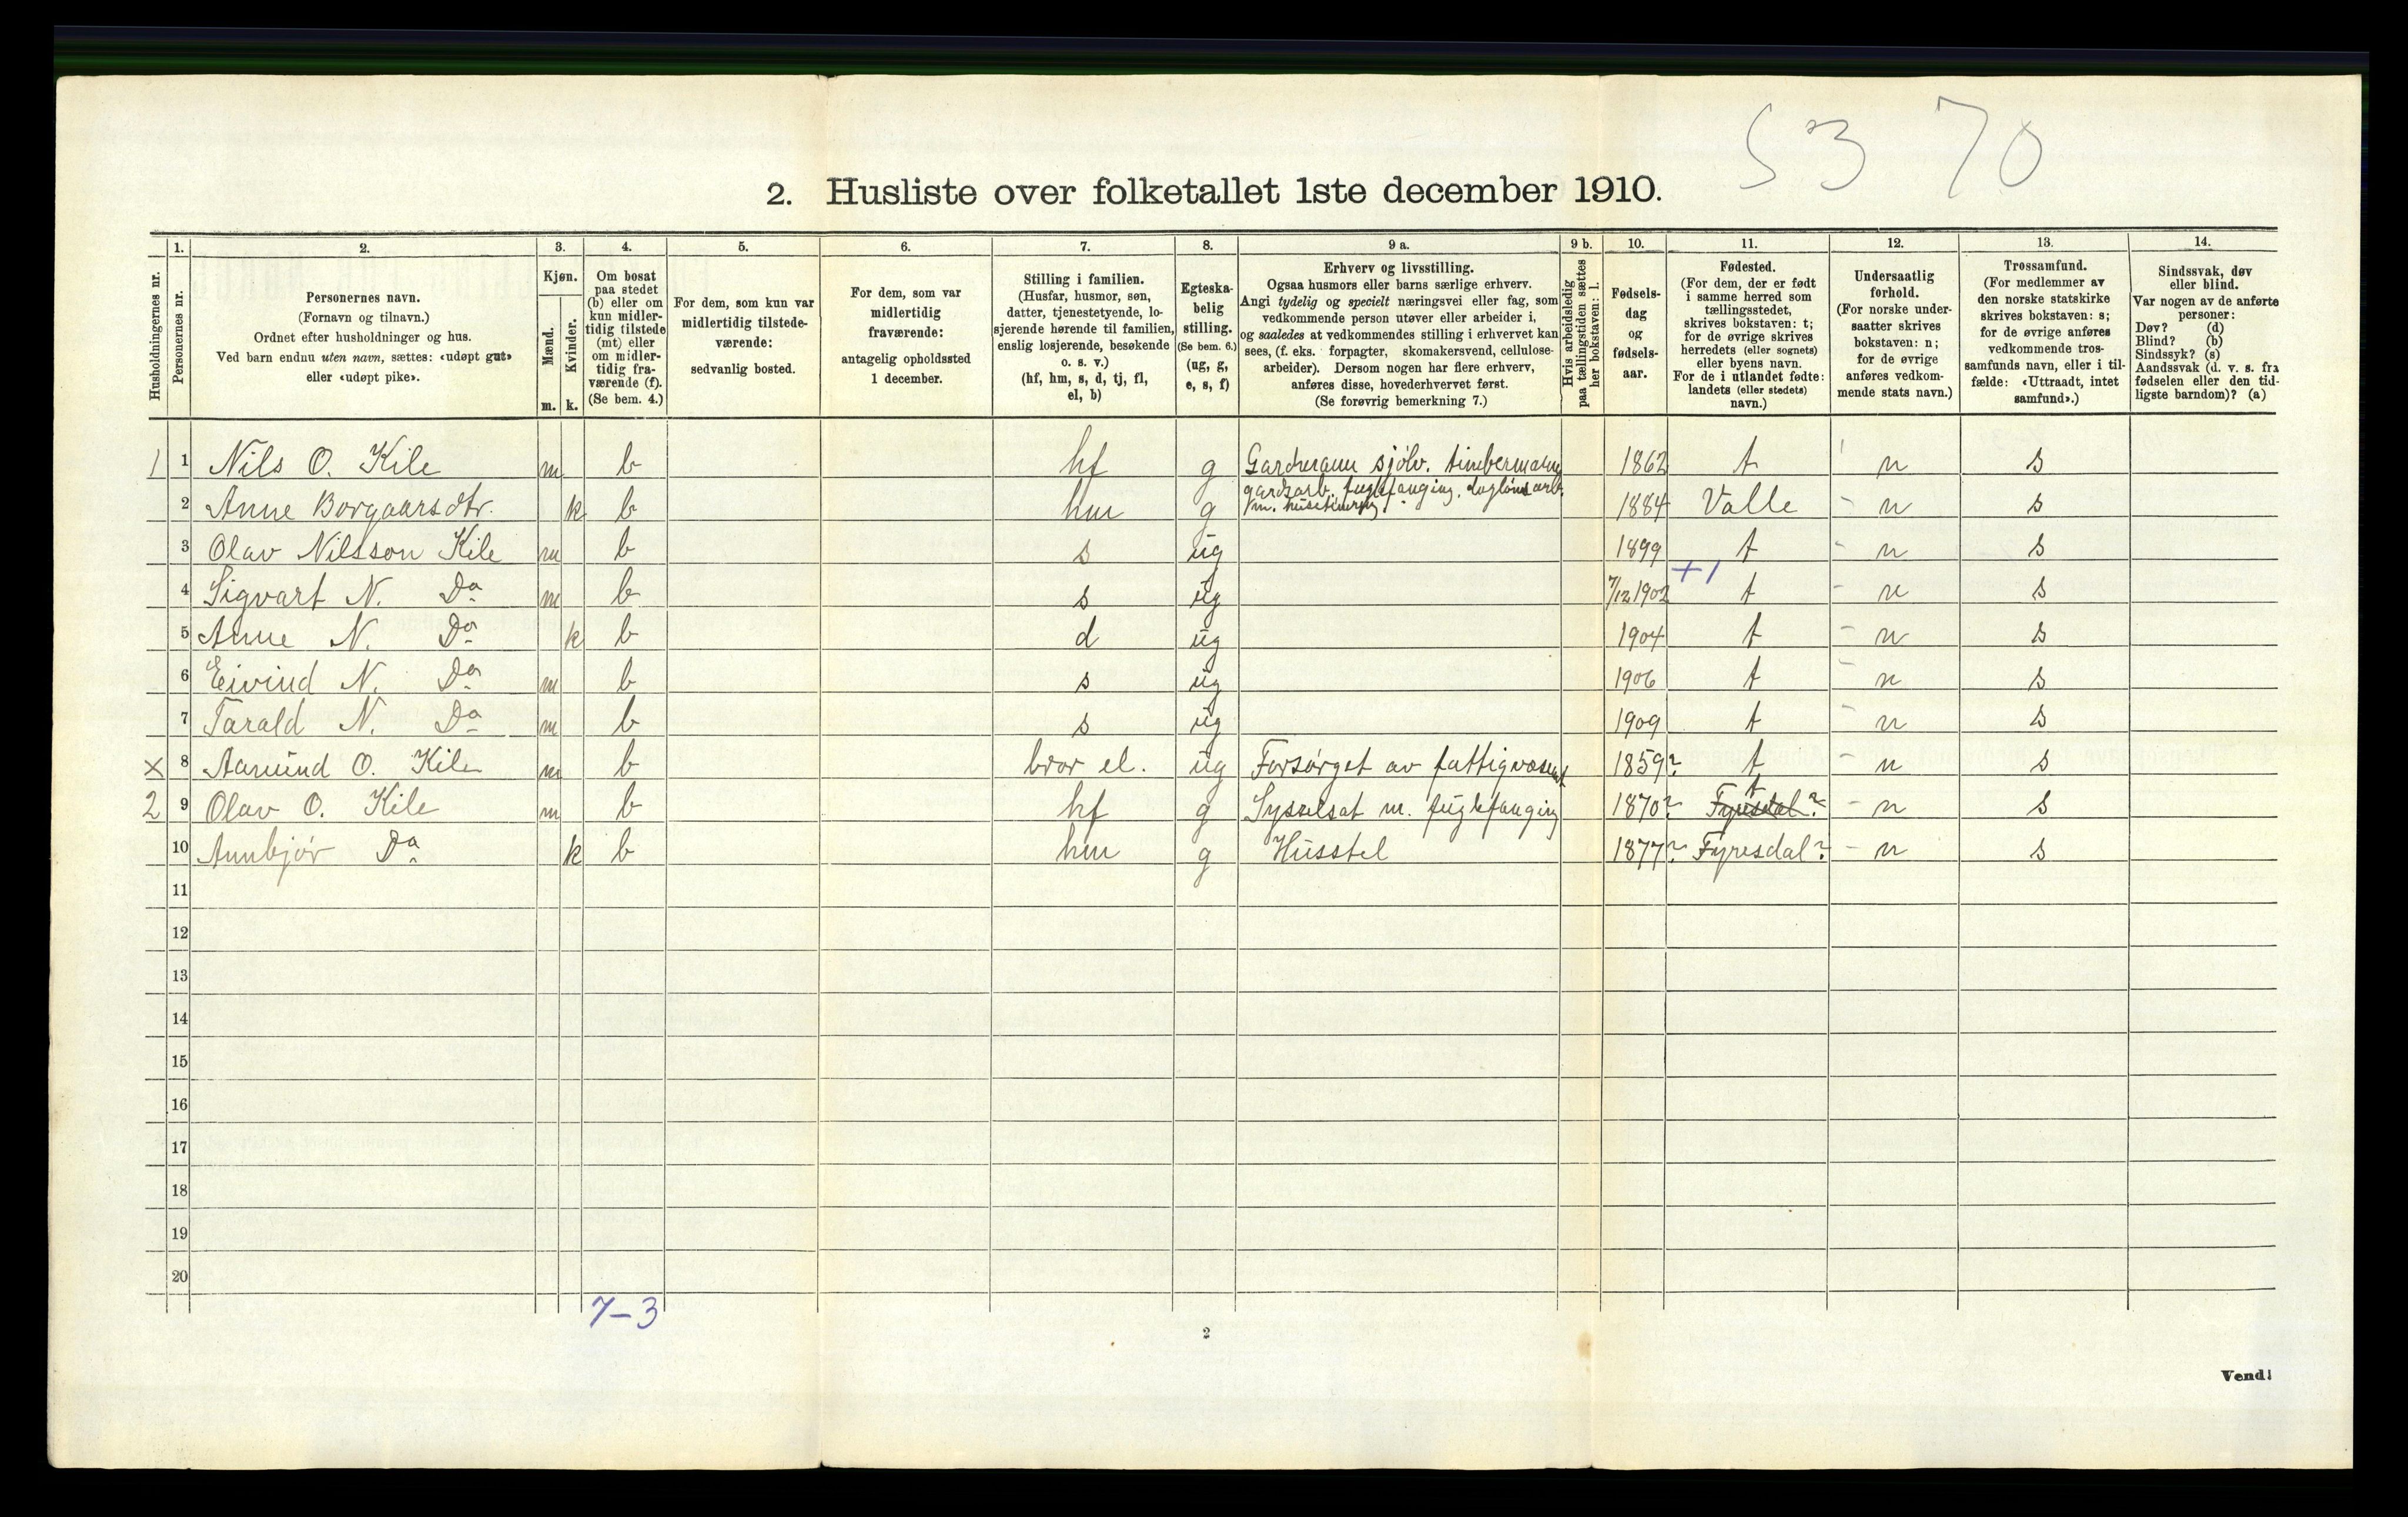 53 70
2. Husliste over folketallet 1ste december 1910.
Husholdningernes nr.
1.
Personernes nr.
2.
Personernes navn.
(Fornavn og tilnavn.)
Ordnet efter husholdninger og hus.
Ved barn endnu uten navn, sættes: «udøpt gut»
eller «udøpt pike».
3.
Kjøn.
Mænd.
Kvinder.
m. k.
4.
Om bosat
paa stedet
(b) eller om
kun midler-
tidig tilstede
(mt) eller
om midler-
tidig fra-
værende (f).
(Se bem. 4.)
5.
For dem, som kun var
midlertidig tilstede-
værende:
sedvanlig bosted.
6.
For dem, som var
midlertidig
fraværende:
antagelig opholdssted
1 december.
7.
Stilling i familien.
(Husfar, husmor, søn,
datter, tjenestetyende, lo-
sjerende hørende til familien,
enslig losjerende, besøkende
o. s. v.)
(hf, hm, s, d, tj, fl,
el, b)
8.
Egteska-
belig
stilling.
(Se bem. 6.)
(ug, g,
e, s, f)
9 a.
Erhverv og livsstilling.
Ogsaa husmors eller barns særlige erhverv.
Angi tydelig og specielt næringsvei eller fag, som
vedkommende person utøver eller arbeider i,
og saaledes at vedkommendes stilling i erhvervet kan
sees, (f. eks. forpagter, skomakersvend, cellulose-
arbeider). Dersom nogen har flere erhverv,
anføres disse, hovederhvervet først.
(Se forøvrig bemerkning 7.)
9 b.
Hvis arbeidsledig
paa tællingstiden sættes
her bokstaven: l.
10.
Fødsels-
dag
og
fødsels-
aar.
11.
Fødested.
(For dem, der er født
i samme herred som
tællingsstedet,
skrives bokstaven: t;
for de øvrige skrives
herredets (eller sognets)
eller byens navn.
For de i utlandet fødte:
landets (eller stedets)
navn.)
12.
Undersaatlig
forhold.
(For norske under-
saatter skrives
bokstaven: n;
for de øvrige
anføres vedkom-
mende stats navn.)
13.
Trossamfund.
(For medlemmer av
den norske statskirke
skrives bokstaven: s;
for de øvrige anføres
vedkommende tros-
samfunds navn, eller i til-
fælde: «Uttraadt, intet
samfund».)
14.
Sindssvak, døv
eller blind.
Var nogen av de anførte
personer:
Døv? (d)
Blind? (b)
Sindssyk? (s)
Aandssvak (d. v. s. fra
fødselen eller den tid-
ligste barndom)? (a)
1 1 Nils O. Kile m b hf g Gardmann sjölv. timbermann 1862 t n s
gardsarb. fuglefanging. dagløns arb.
2 Anne Borgaarsdtr. k b hm g m. 1884 Valle - n s
3 Olav Nilsson Kile m b s ug 1899 t - n s
+1
4 Sigvart N. Do m b s ug 7/12 1902 t - n s
5 Anne N. Do k b d ug 1904 t - n s
6 Eivind N. Do m b s ug 1906 t - n s
7 Tarald N. Do m b s ug 1909 t - n s
x 8 Aamund O. Kile m b bror el. ug Forsørget av fattigvæsenet 1859? t - n s
t
2 9 Olav O. Kile m b hf g Sysselsat m. fuglefanging 1870? Fyresdal? - n s
10 Annbjør Do k b hm g Husstel 1877? Fyresdal? - n s
11
12
13
14
15
16
17
18
19
20
7-3
2
Vend!